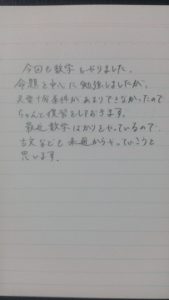 今回も数学をやりました。
命題を中心に勉強しましたが、
必要十分条件があまりできなかったので
ちゃんと復習をしておきます。
最近数学ばかりをやっているので、
古文なども来週からやっていこうと
思います。